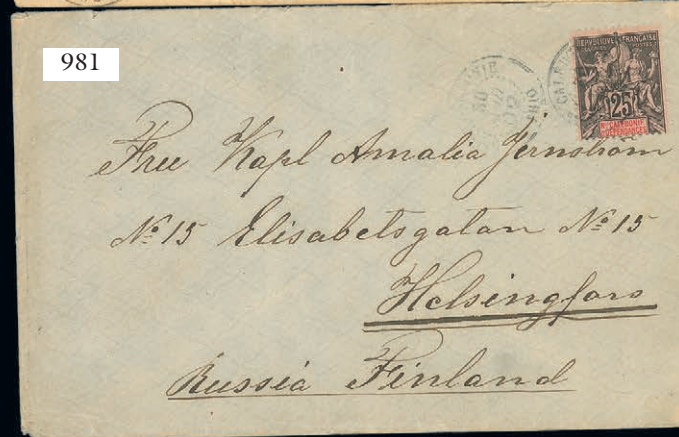 981
REPUBLIQUE FRANÇAISE
25
Nlle CALEDONIE
et DEPENDANCES
CALED
Frue Kapt Amalia Jernström
No 15 Elisabetsgatan No 15
Helsingfors
Russia Finland